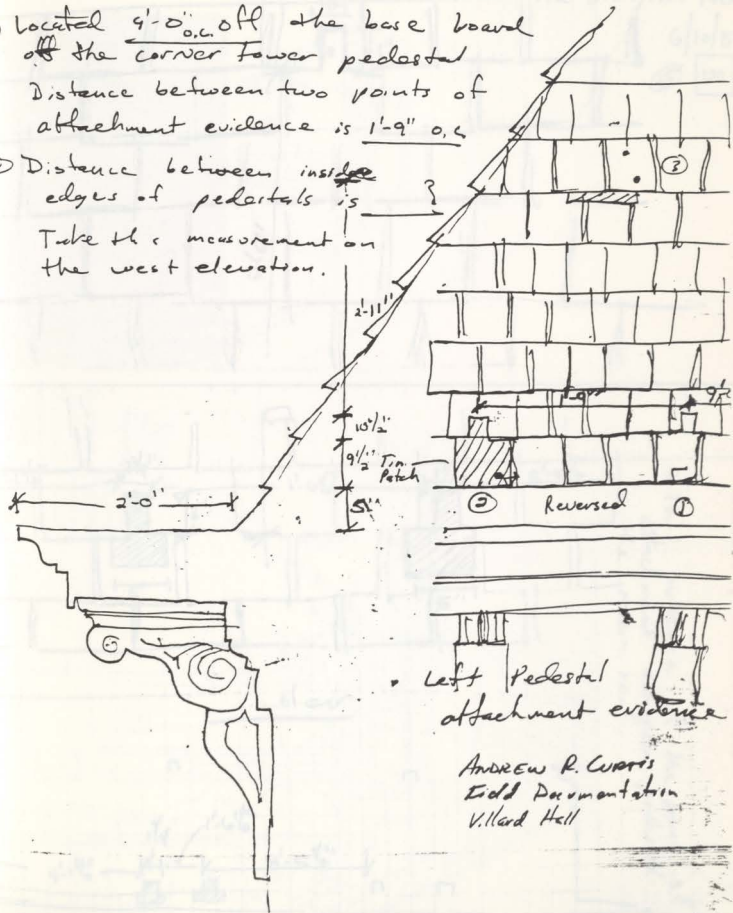 Located 4'-0" o.c. off the base board
off the corner tower pedestal
Distance between two points of
attachment evidence is 1'-9" o.c
Distance between inside
edges of pedestals is ?
Take the measurement on
the west elevation.
③
2'-11"
10½"
9½"
Tin
Patch
5"
2'-0"
②
Reversed
①
Left Pedestal
attachment evidence
ANDREW R. CURTIS
Field Documentation
Villard Hall